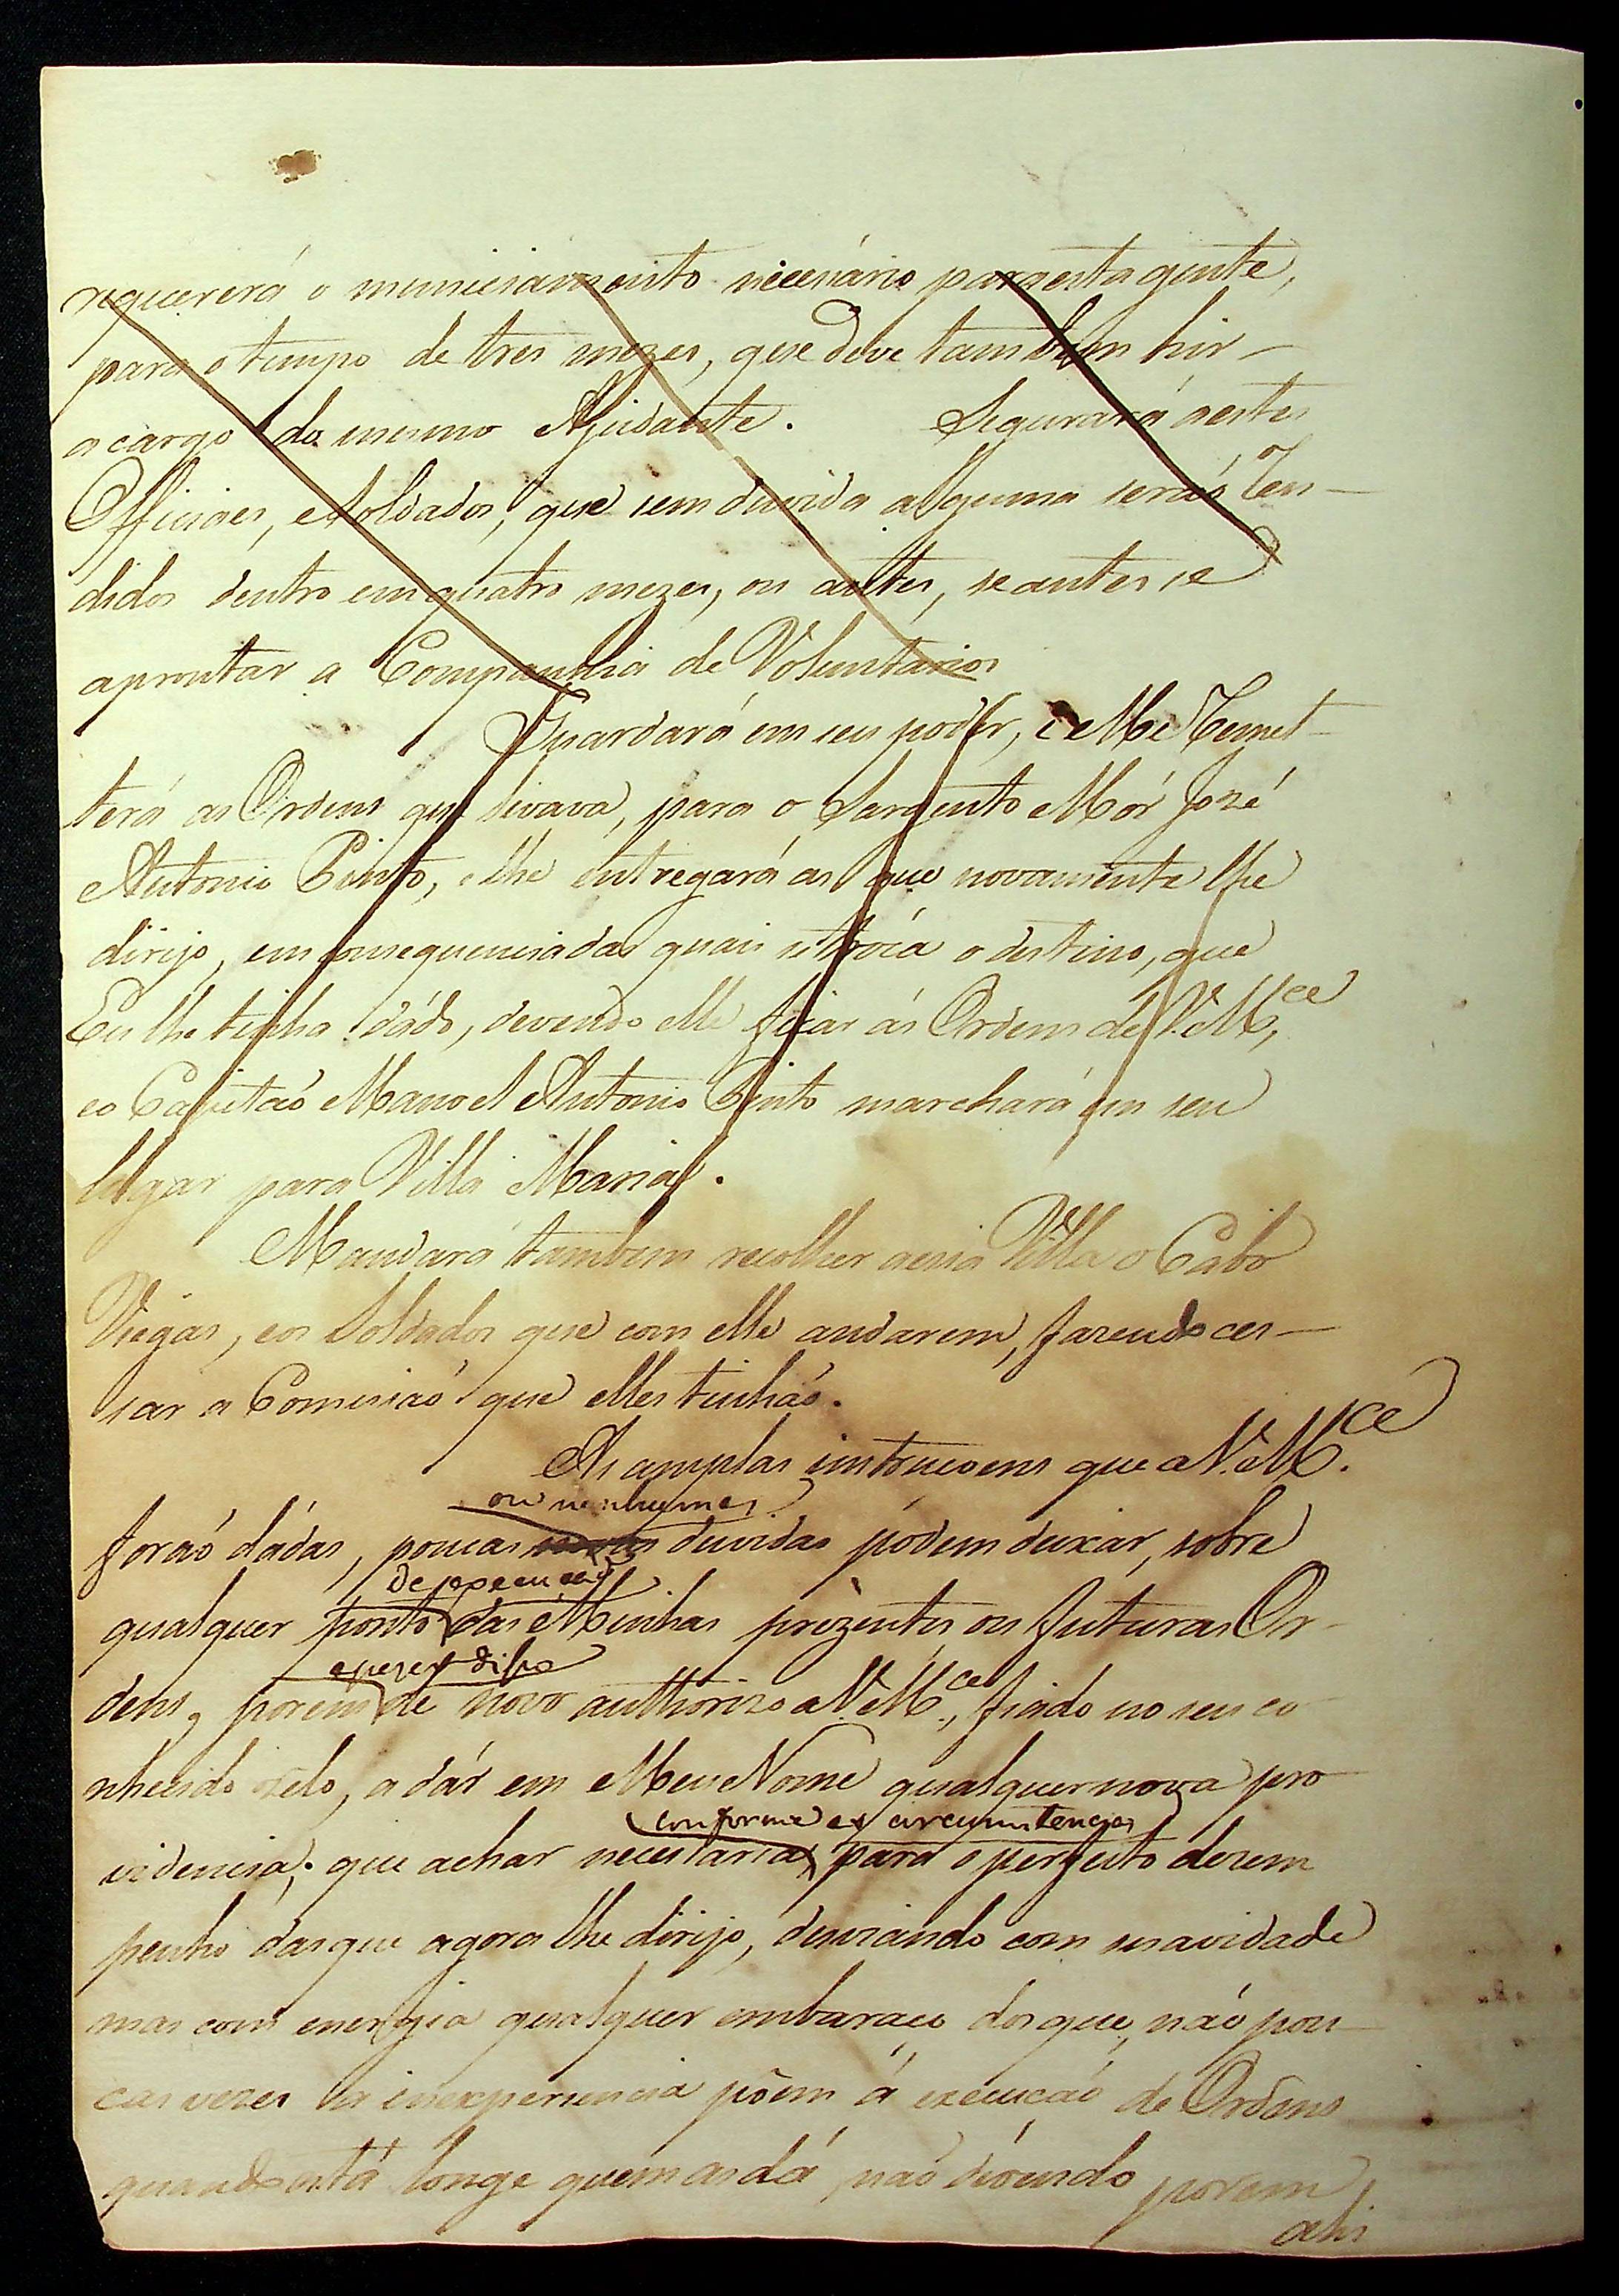 requererá o municiamento necesário para esta gente,
para o tempo de tres mezes, que deve tambem hir
a cargo do mesmo Ajudante. Segurará aestes
Officiaes, e Soldados, que sem duvida alguma seraó Ren-
didos dentro em quatro mezes, ou antes, se antes se
aprontar a Companhia de Voluntarios
Guardará em seu poder, e Me Remet-
terá as Ordens que levava, para o Sargento Mór José
Antonio Pinto, e lhe entregará as que novamente lhe
dirijo, em consequencia das quais se troca o destino, que
Eu lhe tinha dádo, devendo elle ficar ás Ordens de V. M.ce,
eo Capitaó Manoel Antonio Pinto marchará em seu
lugar para Villa Maria.
Mandará tambem recolher aessa Villa o Cabo
Viegas, eos Soldados que com elle andarem, fazendo ces-
sar a Comissaó que elles tinhaó.
As amplas instrucoens que a V. M.ce
ou nenhumas
foraó dádas, poucas duvidas pódem deixar, sobre
de execucaó
qualquer ponto das Minhas prezentes ou futuras Or-
apezar disso
dens, porem de novo authorizo a V. M.ce, fiado no seu co
nhecido zelo, a dár em Meu Nome qualquer nova pro
conforme as circunstencias
videncia, que achar necessaria para o perfeito dezem
penho das que agora lhe dirijo, desviando com suavidade
mas com energia qualquer embaraço dos que, naó pou-
cas vezes a inexperiencia põem á execucaó de Ordens
quando está longe quem as dá, naó devendo porem